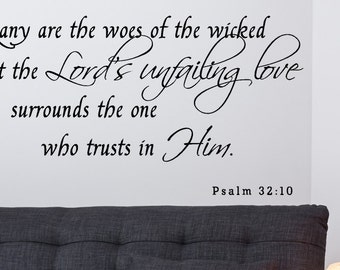 any are the woes of the wicked
t the Lord's unfailing love
surrounds the one
who trusts in Him.
Psalm 32:10